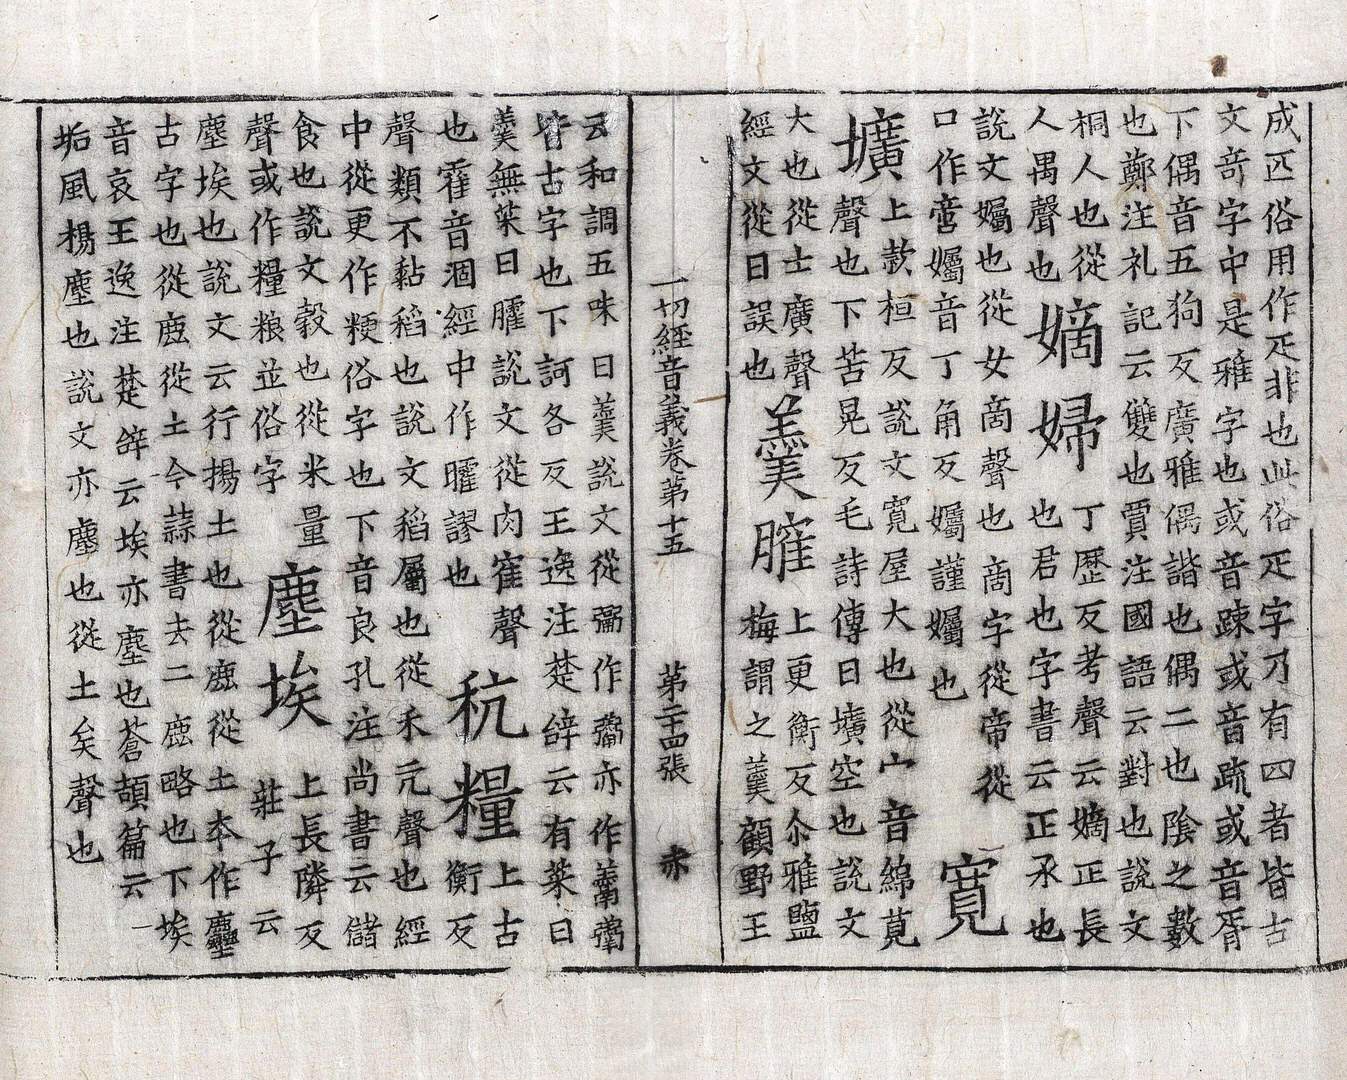 成匹俗用作疋非也此俗疋字乃有四者皆古
文竒字中是雅字也或音踈或音疏或音胥
下偶音五狗反廣雅偶諧也偶二也陰之數
也鄭注礼記云雙也賈注國語云對也說文
桐人也從人禺聲也
嫡婦
丁歷反考聲云嫡正長
也君也字書云正承也
說文孎也從女啇聲也啇字從帝從
口作啻孎音丁角反孎謹孎也
寬
壙
上欵桓反說文寬屋大也從宀音綿莧
聲也下苦晃反毛詩傳曰壙空也說文
大也從士廣聲
經文從日誤也
羹臛
上更衡反尒雅鹽
梅謂之羹顧野王
一切經音義卷第十五 第二十四張 赤
云和調五味曰羹說文從𩰲作𩱧亦作羹𩱋
皆古字也下訶各反王逸注楚辝云有菜曰
羹無菜曰臛說文從肉隺聲
也霍音涸經中作曤謬也
秔糧
上古
衡反
聲類不黏稻也說文稻屬也從禾亢聲也經
中從更作粳俗字也下音良孔注尚書云儲
食也說文榖也從米量
聲或作糧粮並俗字
塵埃
上長隣反
莊子云
塵埃也說文云行揚土也從鹿從土本作𪋻
古字也從鹿從土今蒜書去二鹿略也下埃
音哀王逸注楚辝云埃亦塵也蒼頡篇云
垢風楊塵也說文亦塵也從土矣聲也